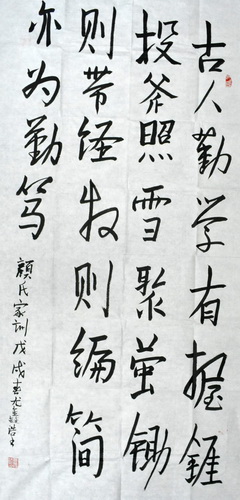 古人勤学有握锥
投斧照雪聚萤锄
则带经牧则编简
亦为勤笃
颜氏家训戊戌春尤